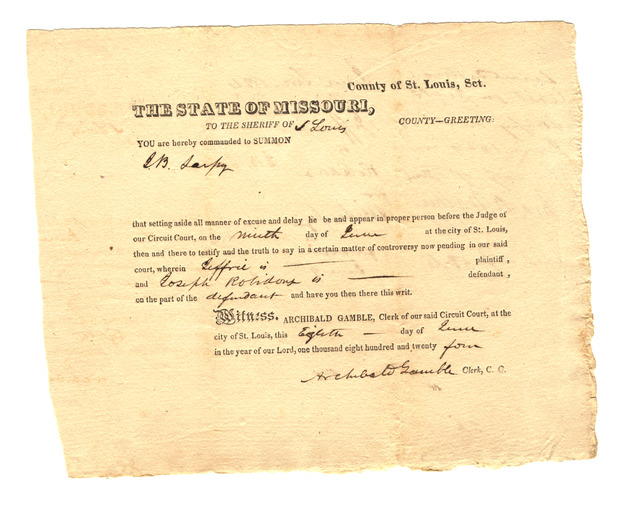 County of St. Louis, Sct.
THE STATE OF MISSOURI,
TO THE SHERIFF OF St Louis COUNTY—GREETING:
YOU are hereby commanded to SUMMON
J.B. Sarpy
that setting aside all manner of excuse and delay he be and appear in proper person before the Judge of
our Circuit Court, on the ninth day of June at the city of St. Louis,
then and there to testify and the truth to say in a certain matter of controversy now pending in our said
court, wherein Jeffrie is — plaintiff,
and Joseph Robidoux is — defendant,
on the part of the defendant and have you then there this writ.
Witness. ARCHIBALD GAMBLE, Clerk of our said Circuit Court, at the
city of St. Louis, this Eighth — day of June
in the year of our Lord, one thousand eight hundred and twenty four
Archibald Gamble Clerk, C. C.